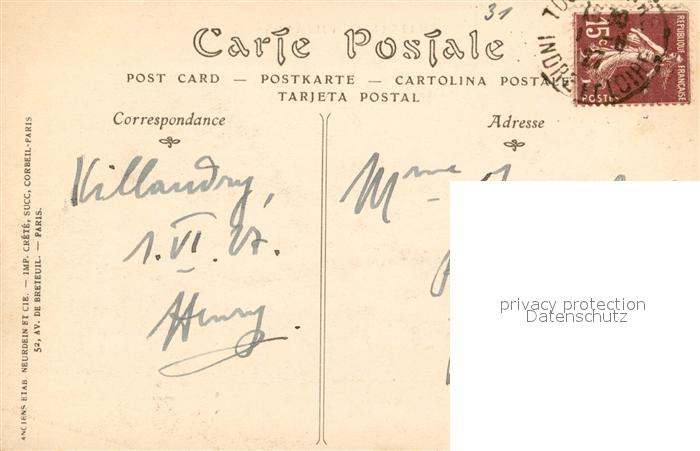 31
Carte Postale
POST CARD — POSTKARTE — CARTOLINA POSTALE
TARJETA POSTAL
Correspondance
Villandry,
1. VI. 27.
Henry.
Adresse
Mme
REPUBLIQUE FRANÇAISE
15c
POSTES
INDRE ET LOIRE
ANCIENS ETAB. NEURDEIN ET CIE. — IMP. CRÉTÉ, SUCC, CORBEIL-PARIS
52, AV. DE BRETEUIL. — PARIS.
privacy protection
Datenschutz